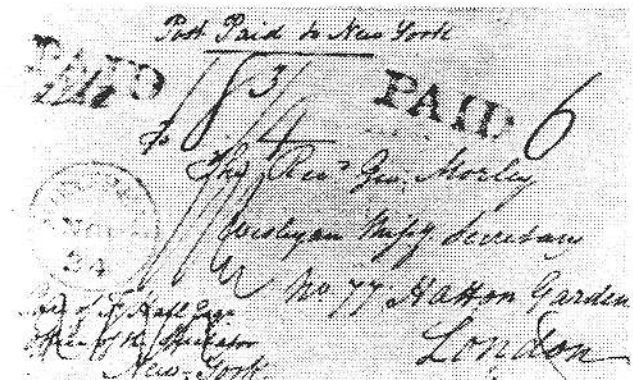 Post Paid to New York
PAID
PAID 6
3
4
To
The Revd Geo. Morley
Wesleyan Missy Secretary
No 77 Hatton Garden
London
24
Care of F. Hall Esqr
Office of the Spectator
New-York